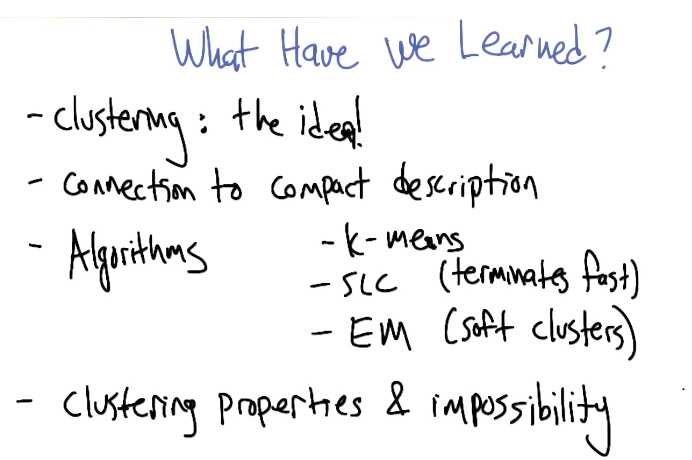 What Have we Learned?
- clustering: the idea!
- connection to compact description
- Algorithms - k-means
- SLC (terminates fast)
- EM (soft clusters)
- clustering properties & impossibility